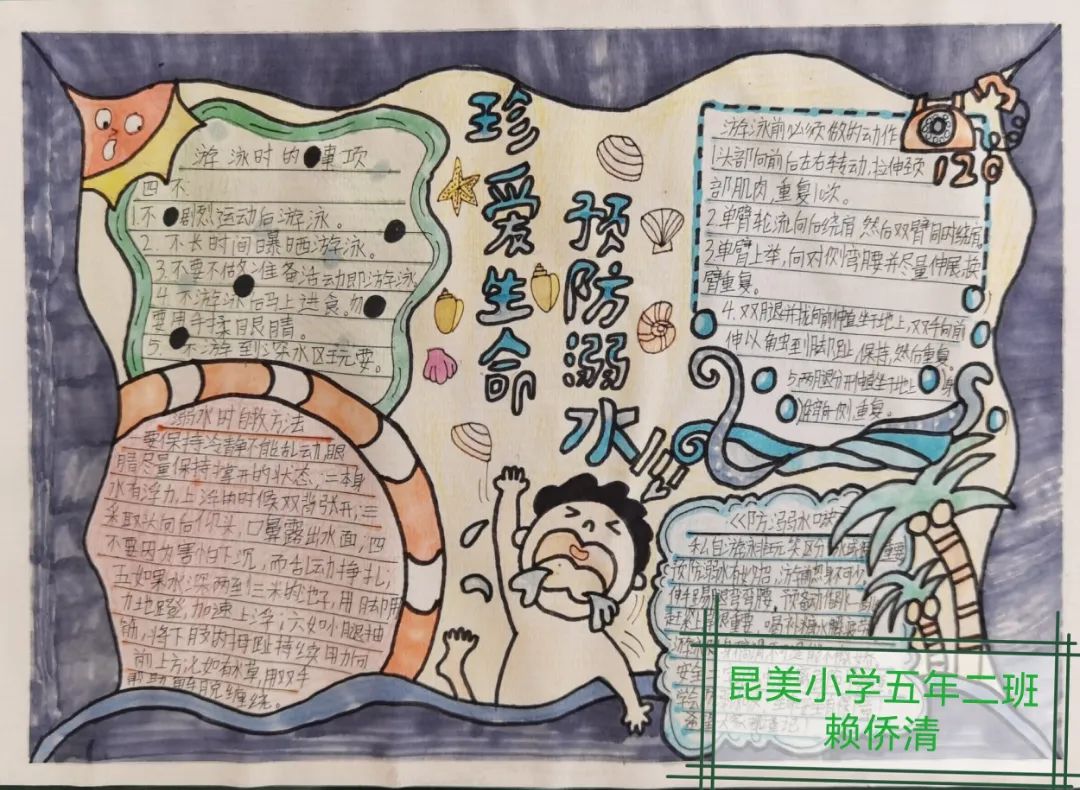 珍爱生命
预防溺水
游泳时的 事项
四不
1.不 剧烈运动后游泳。
2.不长时间曝晒游泳。
3.不要不做 准备活动即游泳
4.不游泳后马上进食。勿
要用手揉眼睛。
5. 不游到深水区玩耍。
溺水时自救方法
一要保持冷静不能乱动,眼
睛尽量保持撑开的状态,二本身
水有浮力,上浮的时候双 张开,三
采取头向后仰头,口鼻露出水面,四
不要因为害怕下沉,而乱动挣扎,
五如果水深两到三米的地,用脚用
力地蹬,加速上浮,六如小腿抽
筋,将下肢的拇趾持续用力向
前上方, 如有水草,用双手
帮助解脱缠绕。
游泳前必须做的动作
1头部向前后左右转动,拉伸颈
部肌肉,重复10次。
2.单臂轮流向后绕肩,然后双臂同时绕肩
3.单臂上举,向对侧弯腰并尽量伸展,换
臂重复。
4.双腿并拢向前伸直坐于地上,双手向前
伸以触到脚趾,保持,然后重复。
5.两腿分开伸直坐于地上, 身
侧,重复。
120
《防溺水口诀
私自游泳 玩笑 重要
预防溺水有妙招,游前热身不可少,
弯弯腰,预备动作
重要,喝
安全
昆美小学五年二班
赖侨清